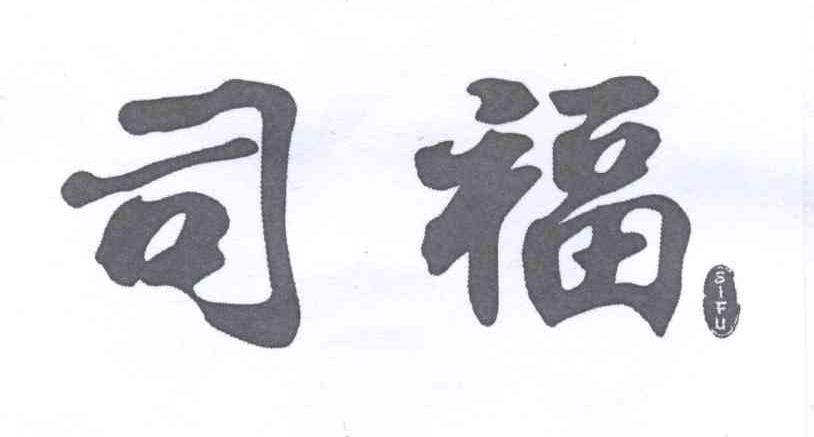 司福
SIFU